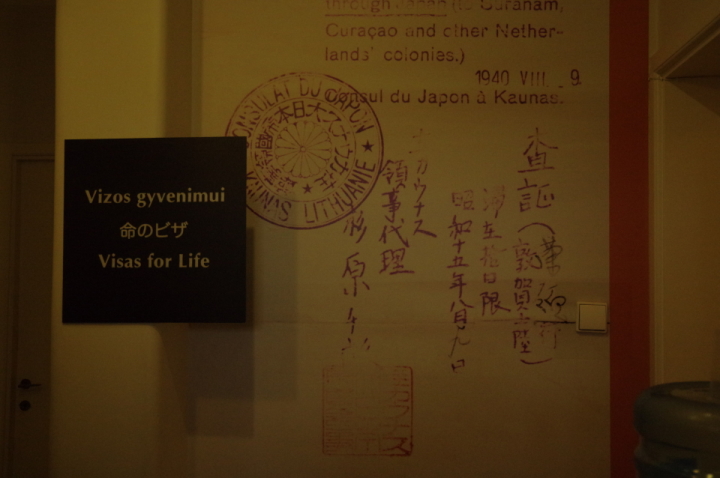 Vizos gyvenimui
命のビザ
Visas for Life
through Japan (to Suranam,
Curaçao and other Nether-
lands' colonies.)
1940 VIII. 9.
Consul du Japon à Kaunas.
CONSULAT DU JAPON
KAUNAS LITHUANIE
査証(敦賀上陸)
滞在拾日限
昭和十五年八月九日
カウナス
領事代理
杉原